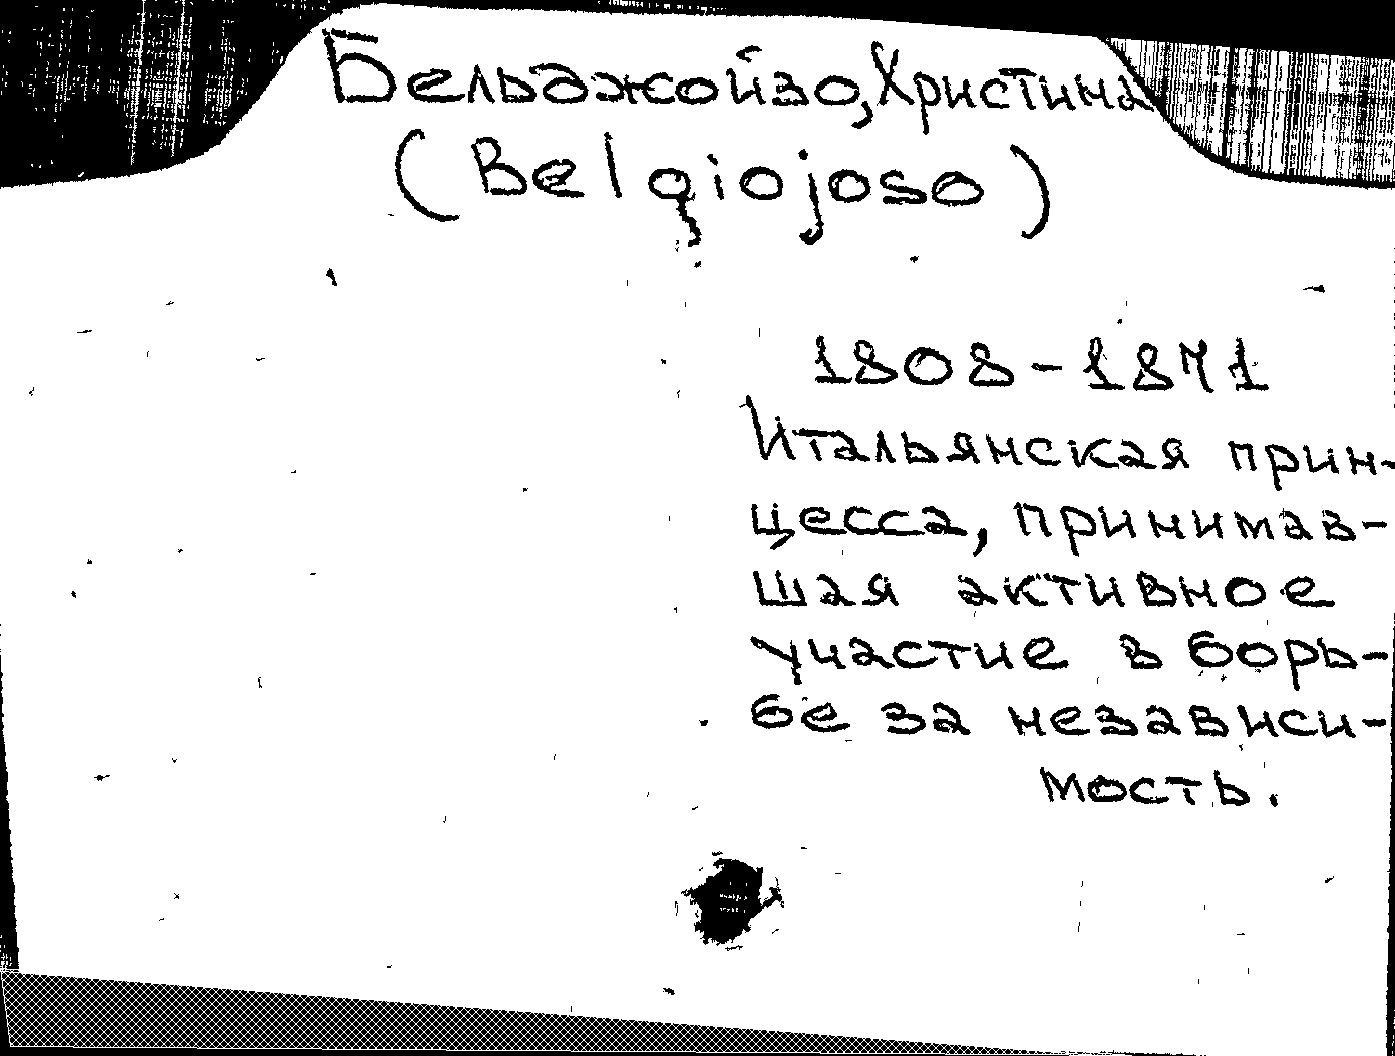 Бельджойзо, Христина
(Belgiojoso)
1808-1871
Итальянская прин-
цесса, принимав-
шая активное
участие в борь-
бе за независи-
мость.